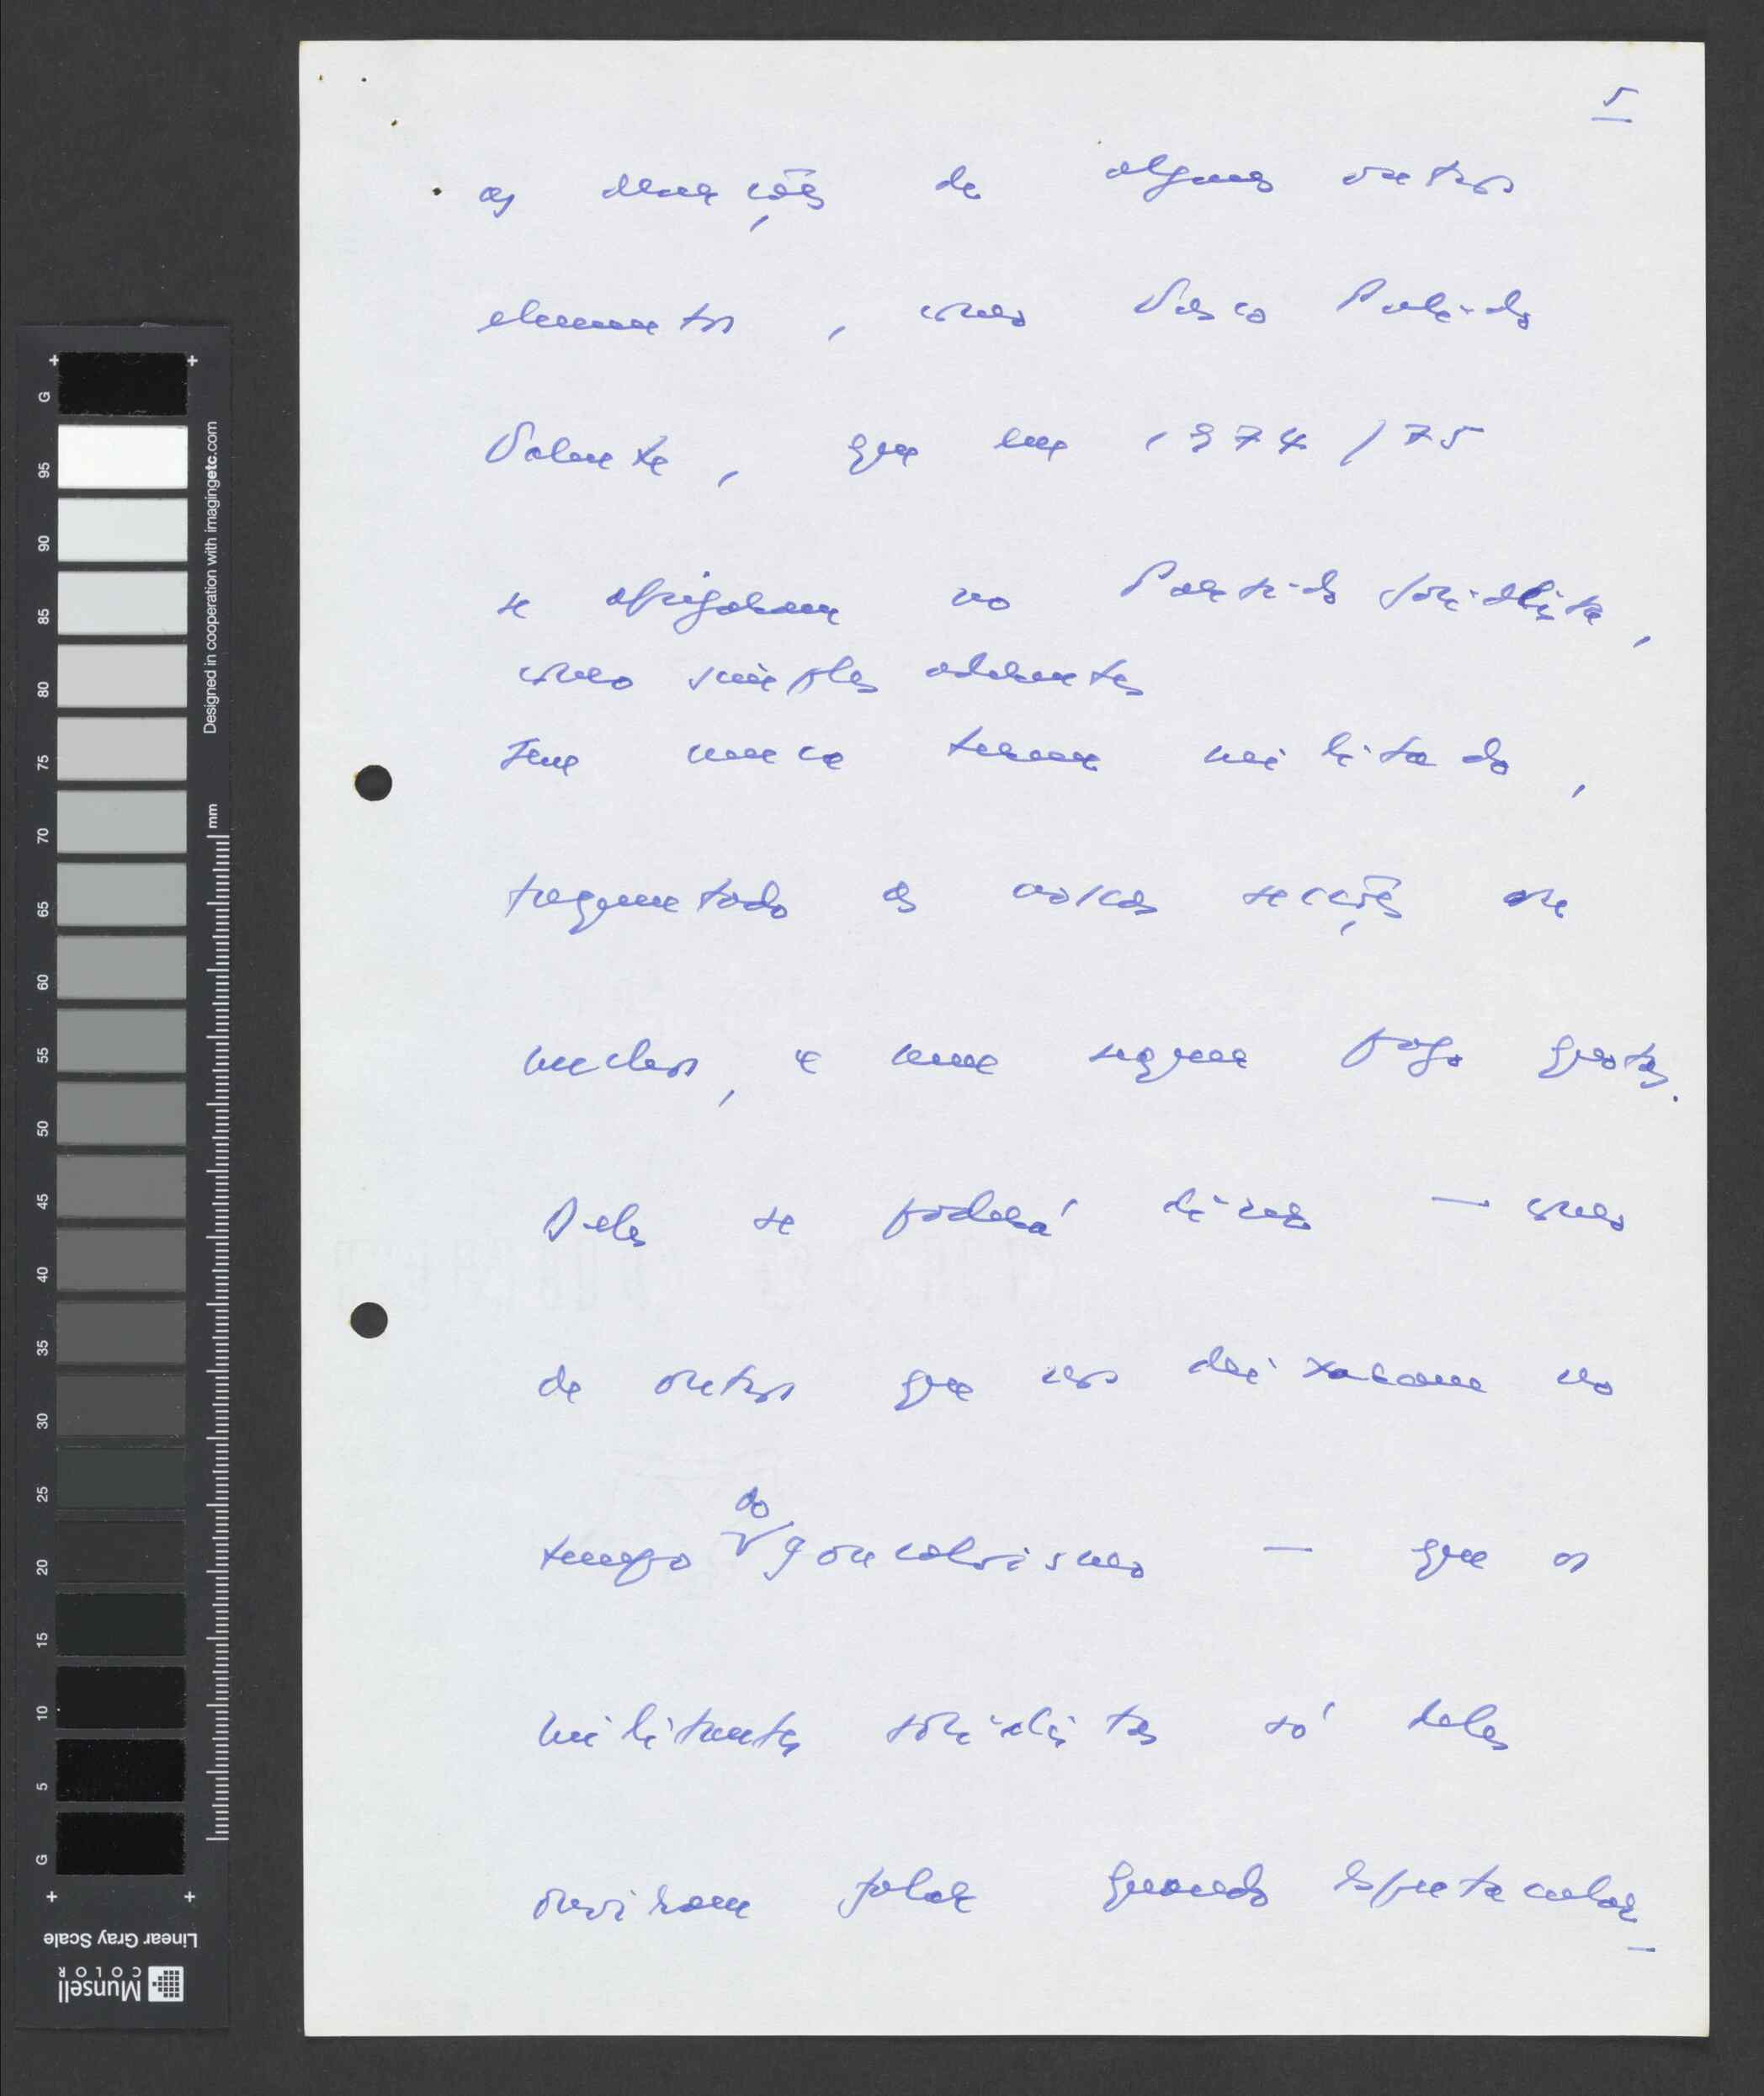 5
as demições de alguns outros
elementos, como Vasco Pulido
Valente, que em 1974/75
se abrigaram no Partido Socialista,
como simples aderentes
sem nunca terem militado,
frequentado as nossas secções ou
nucleos, e nem sequer pago quotas.
Deles se poderá dizer — como
de outros que nos deixaram no
tempo do gonçalvismo — que os
militantes socialistas só deles
ouviram falar quando espectacular-
G 95 90 85 80 75 70 65 60 55 50 45 40 35 30 25 20 15 10 5 G
Designed in cooperation with imagingetc.com
mm
Linear Gray Scale
Munsell
COLOR